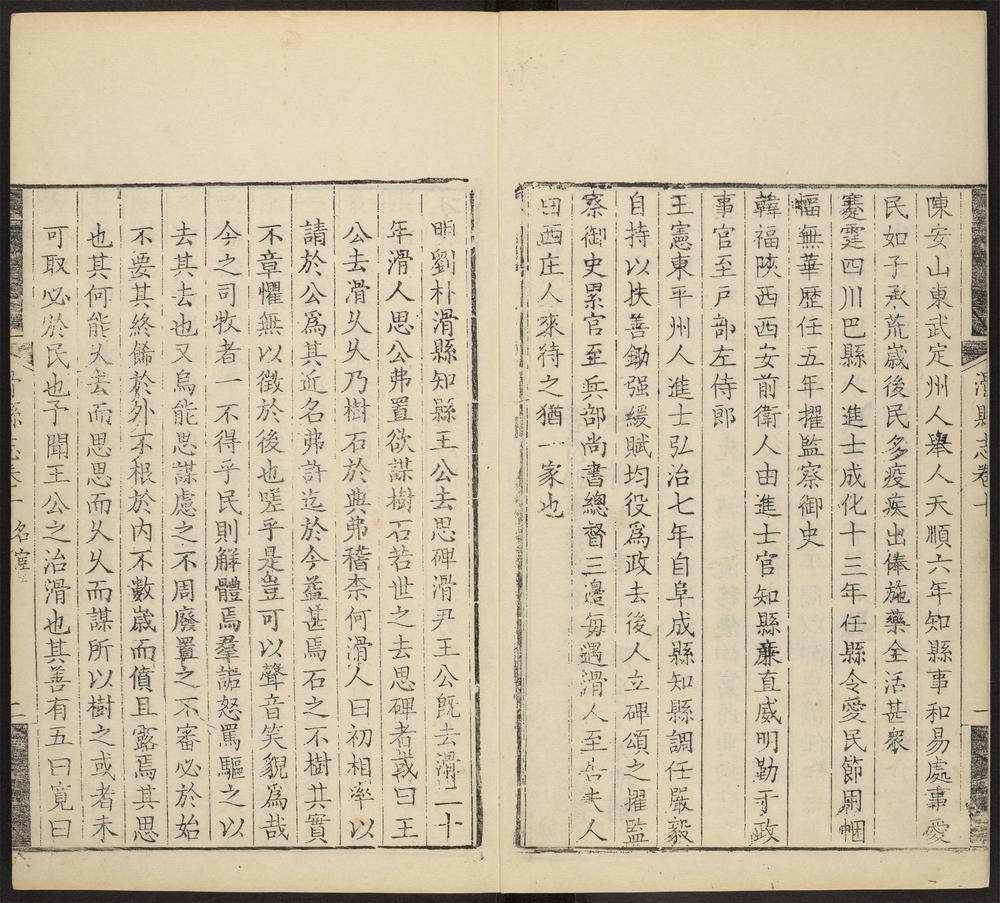 滑縣志卷十
一
陳安山東武定州人舉人天順六年知縣事和易處事愛
民如子承荒歲後民多疫疾出俸施藥全活甚眾
蹇霆四川巴縣人進士成化十三年任縣令愛民節用悃
愊無華歷任五年擢監察御史
韓福陝西西安前衛人由進士官知縣亷直威明勤于政
事官至戸部左侍郎
王憲東平州人進士弘治七年自阜成縣知縣調任嚴毅
自持以扶善鋤强緩賦均役爲政去後人立碑頌之擢監
察御史累官至兵部尚書總督三邊每遇滑人至夫人
田西庄人來待之猶一家也
明劉朴滑縣知縣王公去思碑滑尹王公旣去滑二十
年滑人思公弗置欲謀樹石若世之去思碑者或曰王
公去滑乆乆乃樹石於典弗稽柰何滑人曰初相率以
請於公爲其近名弗許迄於今益甚焉石之不樹其實
不章懼無以徵於後也嗟乎是豈可以聲音笑貌爲哉
今之司牧者一不得乎民則解體焉羣詬怒罵驅之以
去其去也又烏能思謀慮之不周廢置之不審必於始
不要其終餙於外不根於内不數歲而僨且露焉其思
也其何能乆去而思思而乆乆而謀所以樹之或者未
可取必於民也予聞王公之治滑也其善有五曰寬曰
縣志卷十
名宦
二